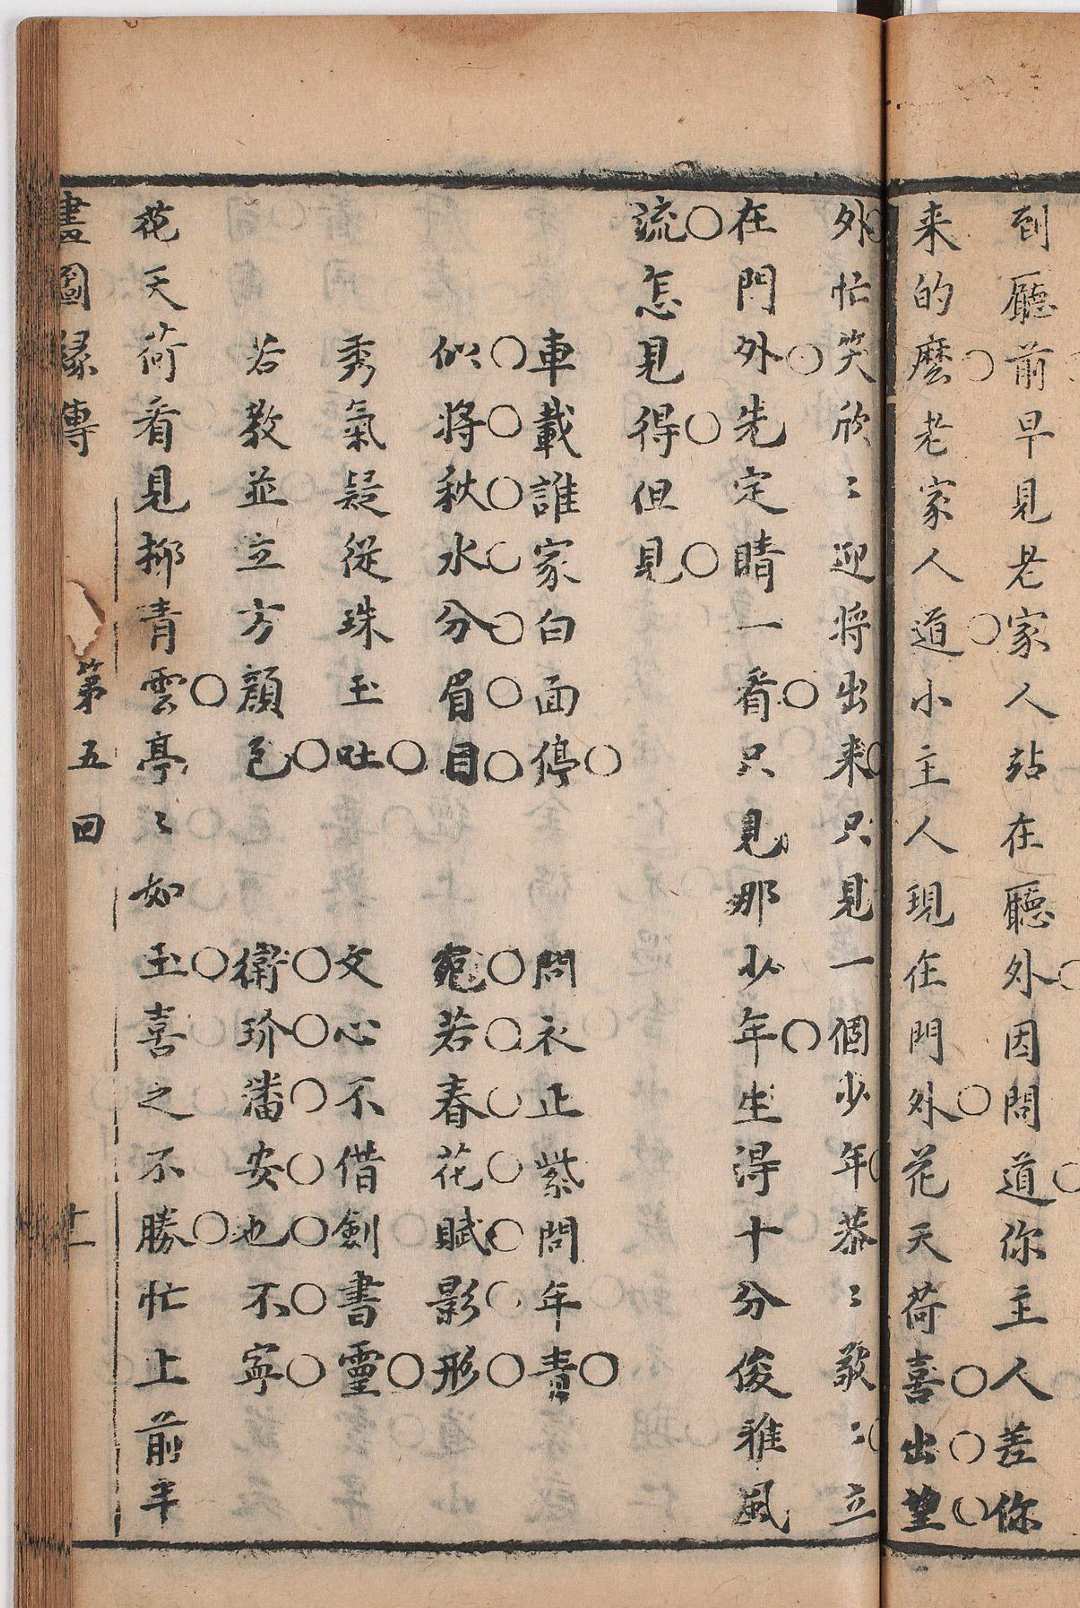 到廳前早見老家人站在廳外因問道你主人差你
来的麽老家人道小主人現在門外花天荷喜出望
外忙笑欣〻迎将出来只見一個少年恭〻敬〻立
在門外先定睛一看只見那少年生得十分俊雅風
流怎見得但見
車載誰家白面停　問衣正紫問年青
似將秋水分眉目　宛若春花賦影形
秀氣疑從珠玉吐　文心不借劍書靈
若教並立方顔色　衛玠潘安也不寧
花天荷看見栁青雲亭〻如玉喜之不勝忙上前半
畫圖緣傳　第五回　十一